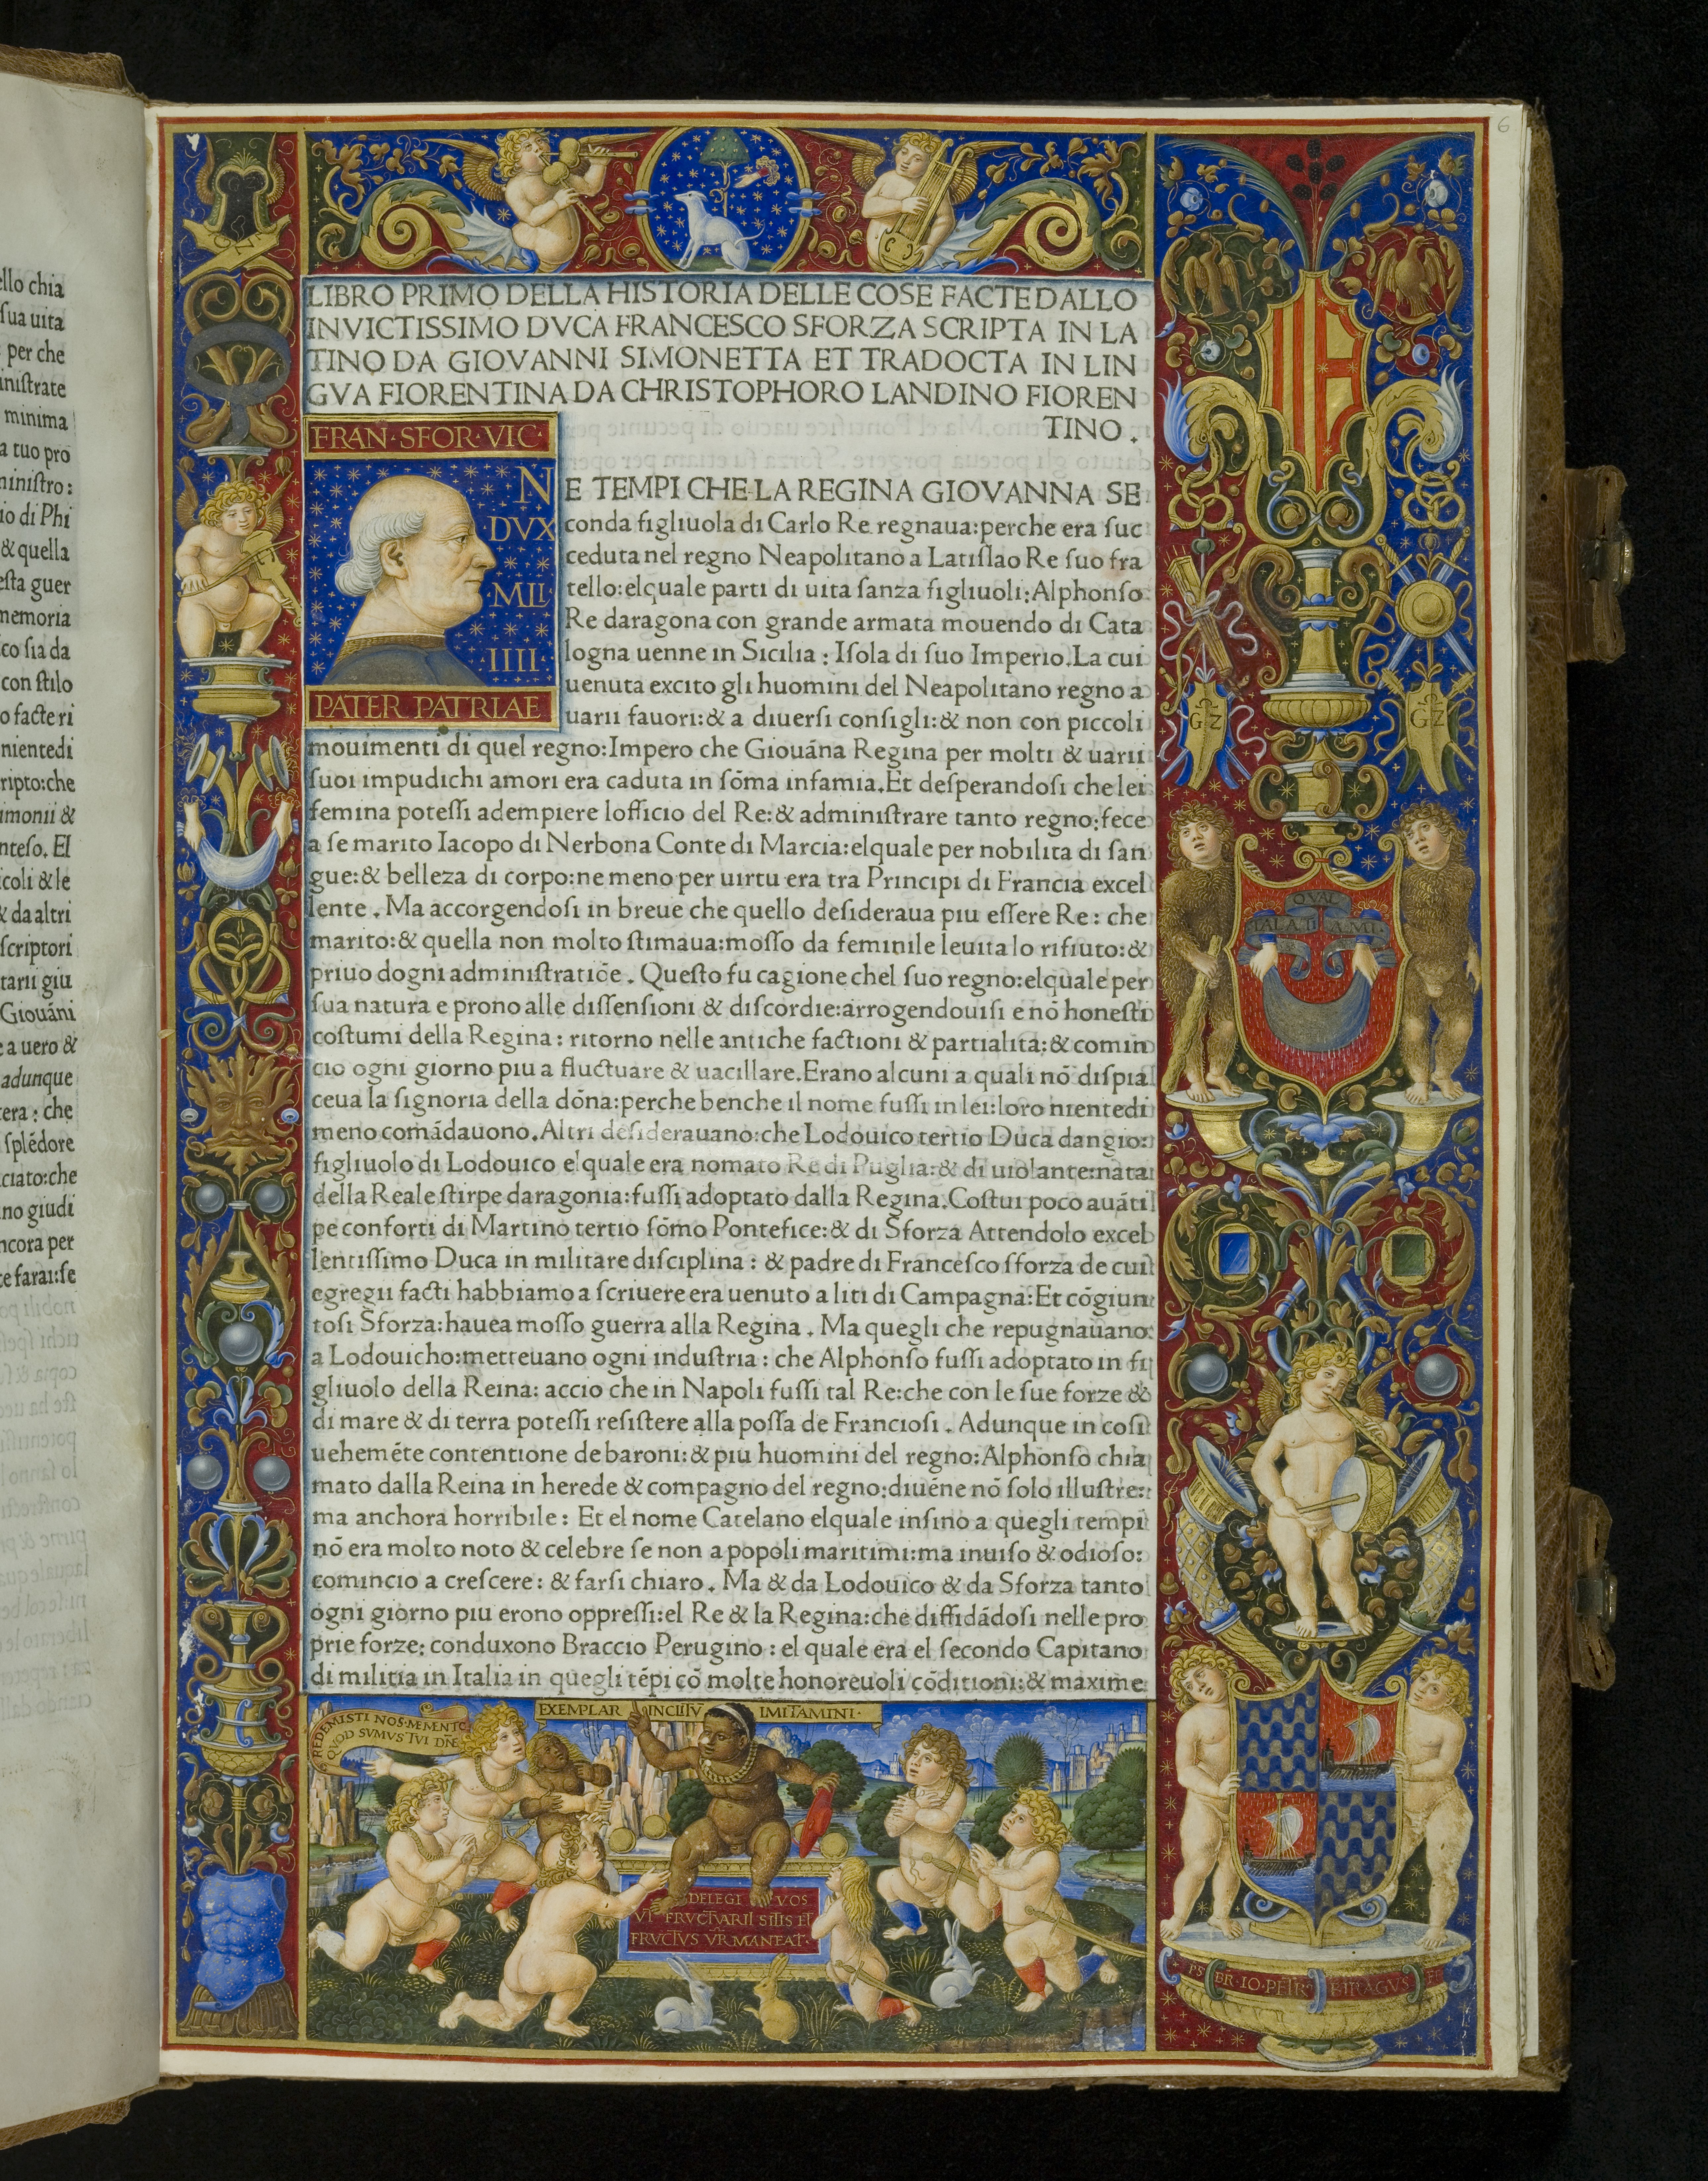 6
LIBRO PRIMO DELLA HISTORIA DELLE COSE FACTE DALLO
INVICTISSIMO DVCA FRANCESCO SFORZA SCRIPTA IN LA
TINO DA GIOVANNI SIMONETTA ET TRADOCTA IN LIN
GVA FIORENTINA DA CHRISTOPHORO LANDINO FIOREN
TINO.
FRAN·SFOR·VIC·
N
DVX
MLI·
·IIII·
PATER PATRIAE
E TEMPI CHE LA REGINA GIOVANNA SE
conda figliuola di Carlo Re regnaua:perche era ſuc
ceduta nel regno Neapolitano a Latiſlao Re ſuo fra
tello:elquale parti di uita ſanza figliuoli:Alphonſo
Re daragona con grande armata mouendo di Cata
logna uenne in Sicilia: Iſola di ſuo Imperio.La cui
uenuta excito gli huomini del Neapolitano regno a
uarii fauori:& a diuerſi conſigli:& non con piccoli
mouimenti di quel regno:Impero che Giouāna Regina per molti & uarii
ſuoi impudichi amori era caduta in ſōma infamia.Et deſperandoſi che lei
femina poteſſi adempiere lofficio del Re:& adminiſtrare tanto regno:fece
a ſe marito Iacopo di Nerbona Conte di Marcia:elquale per nobilita di ſan
gue:& belleza di corpo:ne meno per uirtu era tra Principi di Francia excel
lente. Ma accorgendoſi in breue che quello deſideraua piu eſſere Re: che
marito:& quella non molto ſtimaua:moſſo da feminile leuita lo rifiuto:&
priuo dogni adminiſtratiōe. Queſto fu cagione chel ſuo regno:elquale per
ſua natura e prono alle diſſenſioni & diſcordie:arrogendouiſi e nō honeſti
coſtumi della Regina: ritorno nelle antiche factioni & partialita:& comin
cio ogni giorno piu a fluctuare & uacillare.Erano alcuni a quali nō diſpia
ceua la ſignoria della dōna:perche benche il nome fuſſi in lei:loro nientedi
meno comādauono.Altri deſiderauano:che Lodouico tertio Duca dangio:
figliuolo di Lodouico elquale era nomato Re di Puglia:& di uiolante nata
della Reale ſtirpe daragonia:fuſſi adoptato dalla Regina.Coſtui poco auāti
pe conforti di Martino tertio ſōmo Pontefice:& di Sforza Attendolo excel
lentiſſimo Duca in militare diſciplina: & padre di Franceſco sforza de cui
egregii facti habbiamo a ſcriuere era uenuto a liti di Campagna:Et cōgiun
toſi Sforza:hauea moſſo guerra alla Regina. Ma quegli che repugnauano
a Lodouicho:metteuano ogni induſtria: che Alphonſo fuſſi adoptato in fi
gliuolo della Reina: accio che in Napoli fuſſi tal Re:che con le ſue forze &
di mare & di terra poteſſi reſiſtere alla poſſa de Franciosi. Adunque in coſi
uehemēte contentione de baroni:& piu huomini del regno:Alphonſo chia
mato dalla Reina in herede & compagno del regno:diuēne nō ſolo illuſtre:
ma anchora horribile: Et el nome Catelano elquale inſino a quegli tempi
nō era molto noto & celebre ſe non a popoli maritimi:ma inuiſo & odioſo:
comincio a creſcere: & farſi chiaro. Ma & da Lodouico & da Sforza tanto
ogni giorno piu erono oppreſſi:el Re & la Regina:che diffidādoſi nelle pro
prie forze: conduxono Braccio Perugino: el quale era el ſecondo Capitano
di militia in Italia in quegli tēpi cō molte honoreuoli cōditioni:& maxime
REDEMISTI NOS·MEMENTO
QVOD SVMVS TVI DNE
EXEMPLAR INCLITV IMITAMINI·
DELEGI VOS
VT FRVCTVARII SITIS ET
FRVCTVS VR MANEAT·
G Z
G Z
QVAL
MALA TI A MI
PS BR·IO·PETR BIRAGVS FE
ello chia
ſua uita
per che
iniſtrate
minima
a tuo pro
miniſtro:
io di Phi
& quella
eſta guer
memoria
co ſia da
con ſtilo
o facte ri
nientedi
ripto:che
imonii &
nteſo. El
icoli & le
& da altri
ſcriptori
tarii giu
Giouāni
e a uero &
adunque
tera: che
ſplēdore
ciato:che
no giudi
ncora per
te farai:ſe